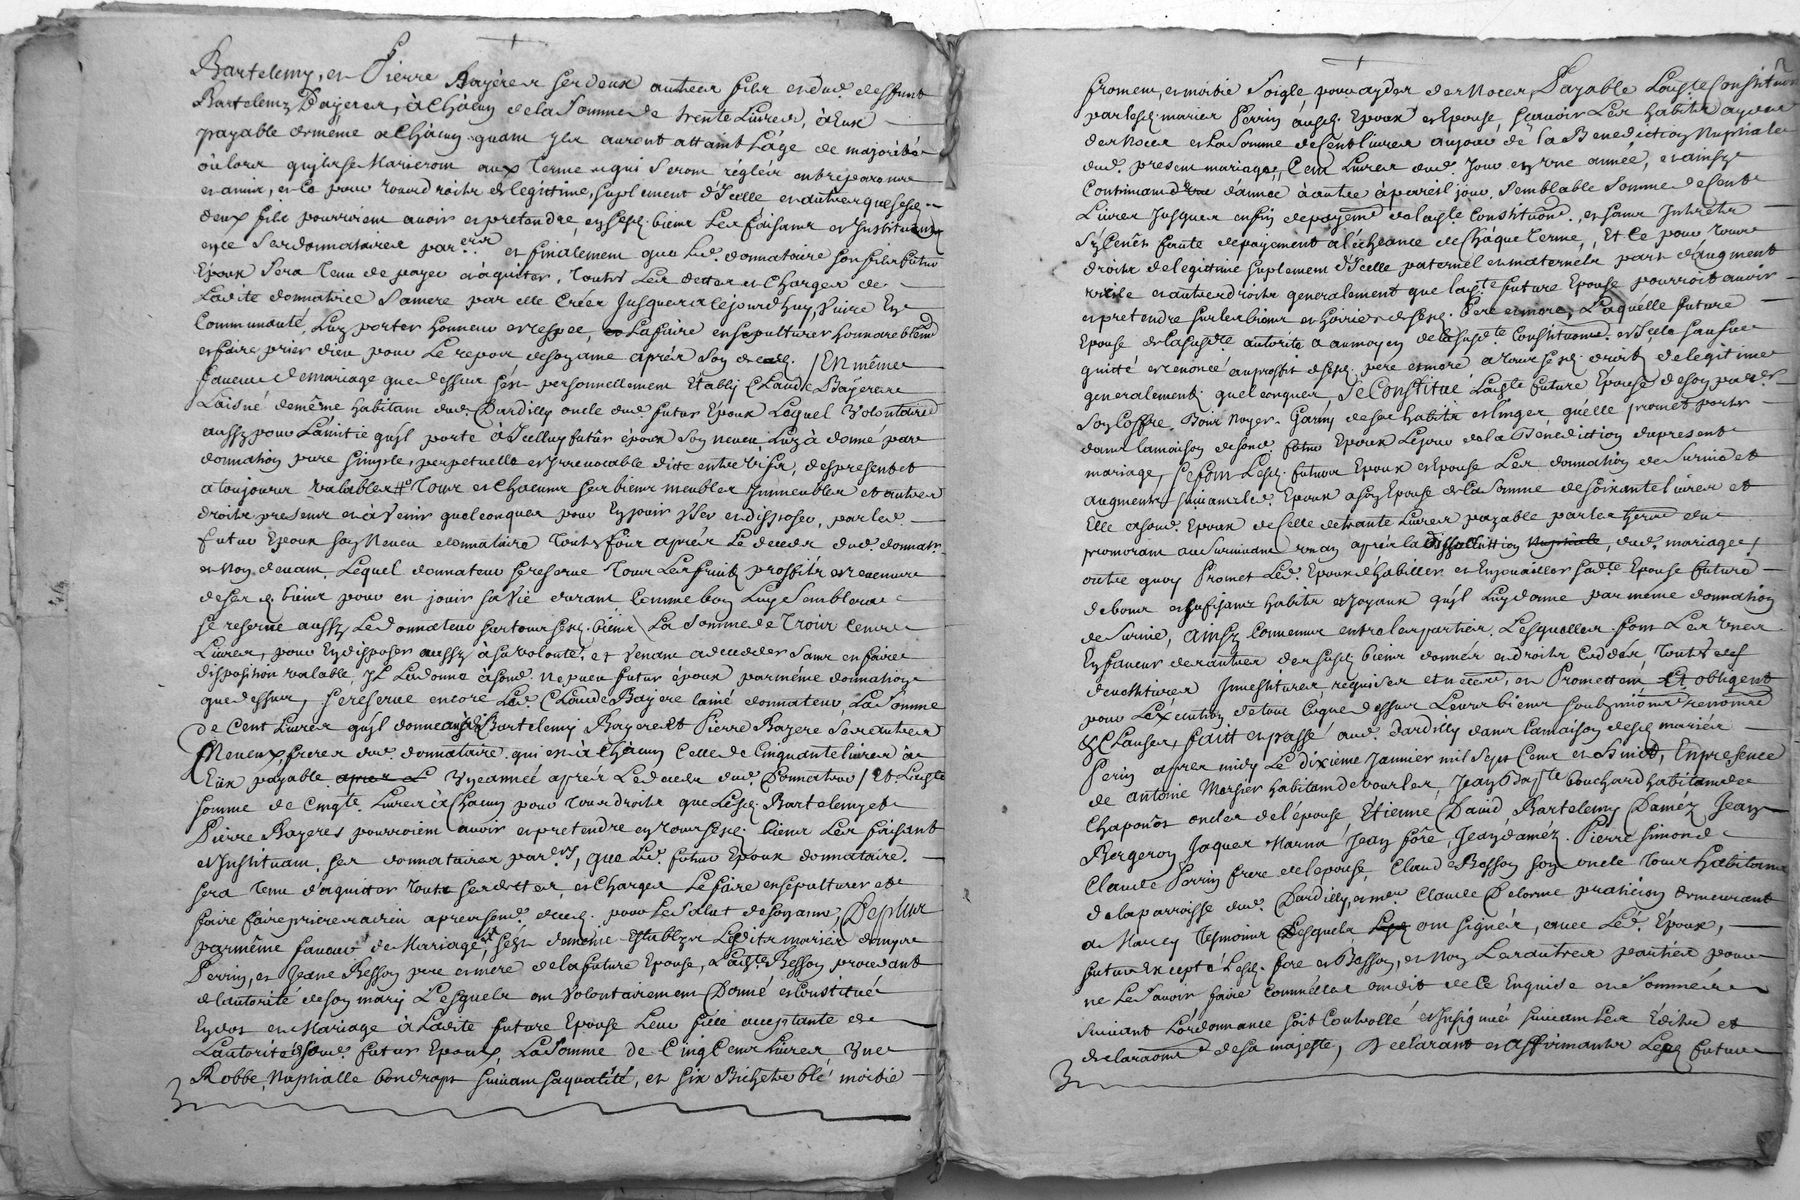 Bartelemy, et Pierre Bayeres ses deux autres fils et dud. deffunt
Bartelemy Bayeres, à Chacun de la Somme de trente Livres, à Eux
payable de même a Chacun quant ils auront attaint L'age de majorité
où lors qu'ils se Marieront aux terme qui seront réglés entre parans
et amis, et ce pour tous droits de legittime, suplement d'Icelle et autres que sesd.
deux fils pourroient avoir et pretandre, en sesd. biens Les faisant et Instituant
en ce ses donnataires par.ers et finalement que Led. donnataire son fils futur
Epoux Sera tenu de payer et aquiter, toutes Les dettes et Charges de
Ladite donnatrice Sa mere par elle Créés Jusques a ce jourd'huy, Vivre En
Communauté, Luy porter honneur et respec, La faire ensepulturer honnorablem.t
et faire prier dieu pour Le repos de son ame aprés son decés. / En même
faveur de mariage que dessus s'est personnellement Etably Claude Bayere
L'aisné de même habitant dud. Dardilly oncle dud. futur Epoux Lequel Volontaire
aussy pour L'amitié qu'il porte à Icelluy futur époux Son neveu Luy à donné par
donnation pure simple, perpetuelle et Irrevocable ditte entre vifs, des present et
a toujours valables tous et Chacuns ses biens meubles Immeubles et autres
droits presens et à Venir quelconques pour En jouir User et disposer, par led.
futur Epoux son Neveu donnataire toutes fois après Le decés dud. donnat.r
et Non devant, Lequel donnateur se reserve tous Les fruits proffits et revenus
de ses d. biens pour en jouir sa vie durant Comme bon Luy Semblera
se reserve aussy Le donnateur sur tous sesd. biens La Somme de Trois Cens
Livres, pour En disposer aussy à sa volonté, et Venant a deceder Sans en faire
disposition valable Il La donne à sond. Nepveu futur époux par même donnation
que dessus, se reserve encore Led. Claude Bayere l'aîné donnateur, La Somme
de Cent Livres qu'il donne auxd. Bartelemy Bayere et Pierre Bayere Ses autres
Neveux, freres dud. donnataire, qui est à Chacun Celle de Cinquante livres à
Eux payable Une année après Le decés dud. Donnateur / Et Laqlle
somme de Cinq.te Livres à Chacun pour tous droits que Lesd. Bartelemy et
Pierre Bayeres pourroient avoir et pretendre en tous sesd. biens Les faisant
et Instituant. Ses donnataires par.ers, que Led. futur Epoux donnataire.
sera tenu d'aquitter toutes ses dettes, et Charges Le faire ensépulturer et
faire faire prieres à dieu aprés sond. décéd. pour Le Salut de son ame, De plus
par même faveur de Mariage se sont de même Establys Lesdits mariés
Perrin, et Jeane Besson pere et mere de la future Epouse, Ladite Besson procedant
de l'autorité de son mary Lesquels ont volontairement Donné et Constitué
En dot en Mariage à Ladite future Epouse Leur fille acceptante de
L'autorité dud. futur Epoux, La Somme de Cinq Cens Livres Une
Robbe, Nuptialle bon drap suivant sa qualité, et six Bichets blé moitié
froment, et moitié Soigle, pour ayder des Noces, Payable Laditte Constituon
par lesd. mariés Perrin auxd. Epoux et Epouse, scavoir Les habits aydes
des Noces et La Somme de Cent livres au jour de La Benediction Nuptiale
dud. present mariage, Cent Livres dud. Jour en une année, et ainsy
Continuant d'année à autre à pareil jour, semblable Somme de Cent
Livres Jusques en fin de payem.t de lad. Constitution, et sans Interets
Sy Ce n'est faute de payement a l'écheance de Châque terme, Et Ce pour tous
droits de legittime suplement d'Icelle paternel et maternels part d'augment
et autres droits generalement que laditte future Epouse pourroit avoir
et pretendre sur les biens et hoiries de sesd. Pere et mere, Laquelle future
Epouse de la susd.te autorité a au moyen de la susd.te Constituon.
quitté et renoncé au proffit desd. pere et mere a tous sesd. droits de legitime
generalement quelconques, Se Constitue Laditte future Epouse de son par.er
Son Coffre Bois Noyer Garny de ses habits et linges qu'elle promet porter
dans la maison de sond. futur Epoux Le jour de la Bénediction du present
mariage, se font Lesd. futurs Epoux et Epouse Les donnations de Survie et
augments suivants Led. Epoux a son Epouse de la Somme de soixante livres et
Elle a sond. Epoux de Celle de trante Livres payable par les du
premourant au Survivant un an après la dissolution, dud. mariage,
outre quoy Promet Led. Epoux d'habiller et Enjoailler Sad.te Epouse future
de bons et suffisans habits et Joyaux qu'il Luy donne par même donnation
de Survie, Ainsy Convenus entre les parties, Lesquelles font Les unes
En faveur des autres des susd. biens donnés et droits Cedder, toutes
devestitures Investitures, requises et necess.res, et Promettent Et obligent
pour L'exécution de tout Ceque dessus Leurs biens soubzmissions renon.ons
& Clauses, faitt et passé aud. Dardilly dans la maison desd. mariés
Perin apres midy Le dixieme Janvier mil sept Cens et huict, En presence
de Antoine Morsier habitant de vourles, Jean Bap.te bouchard habitant de
Chaponost oncles de l'épouse Etienne David Bartelemy Damez Jean
Bergeron Jaques Marna Jean fore, Jean damez. Pierre Simond
Claude Perrin frere de l'epouse, Claude Bosson son oncle tous habitans
de la parroisse dud. Dardilly, et m.e Claude Delorme praticien demeurant
a Marcy tesmoins Lesquels ont signés, avec Led. Epoux,
futur Excepté Lesd. fore et Bosson, et Non Les autres parties pour
ne Le Savoir faire Comm'elles ont dit de Ce Enquise et Sommées
suivant L'ordonnance soit Controllé et Insigné suivant Les Edits et
declarations de sa majesté, Declarant et affirmants Lesd. futurs